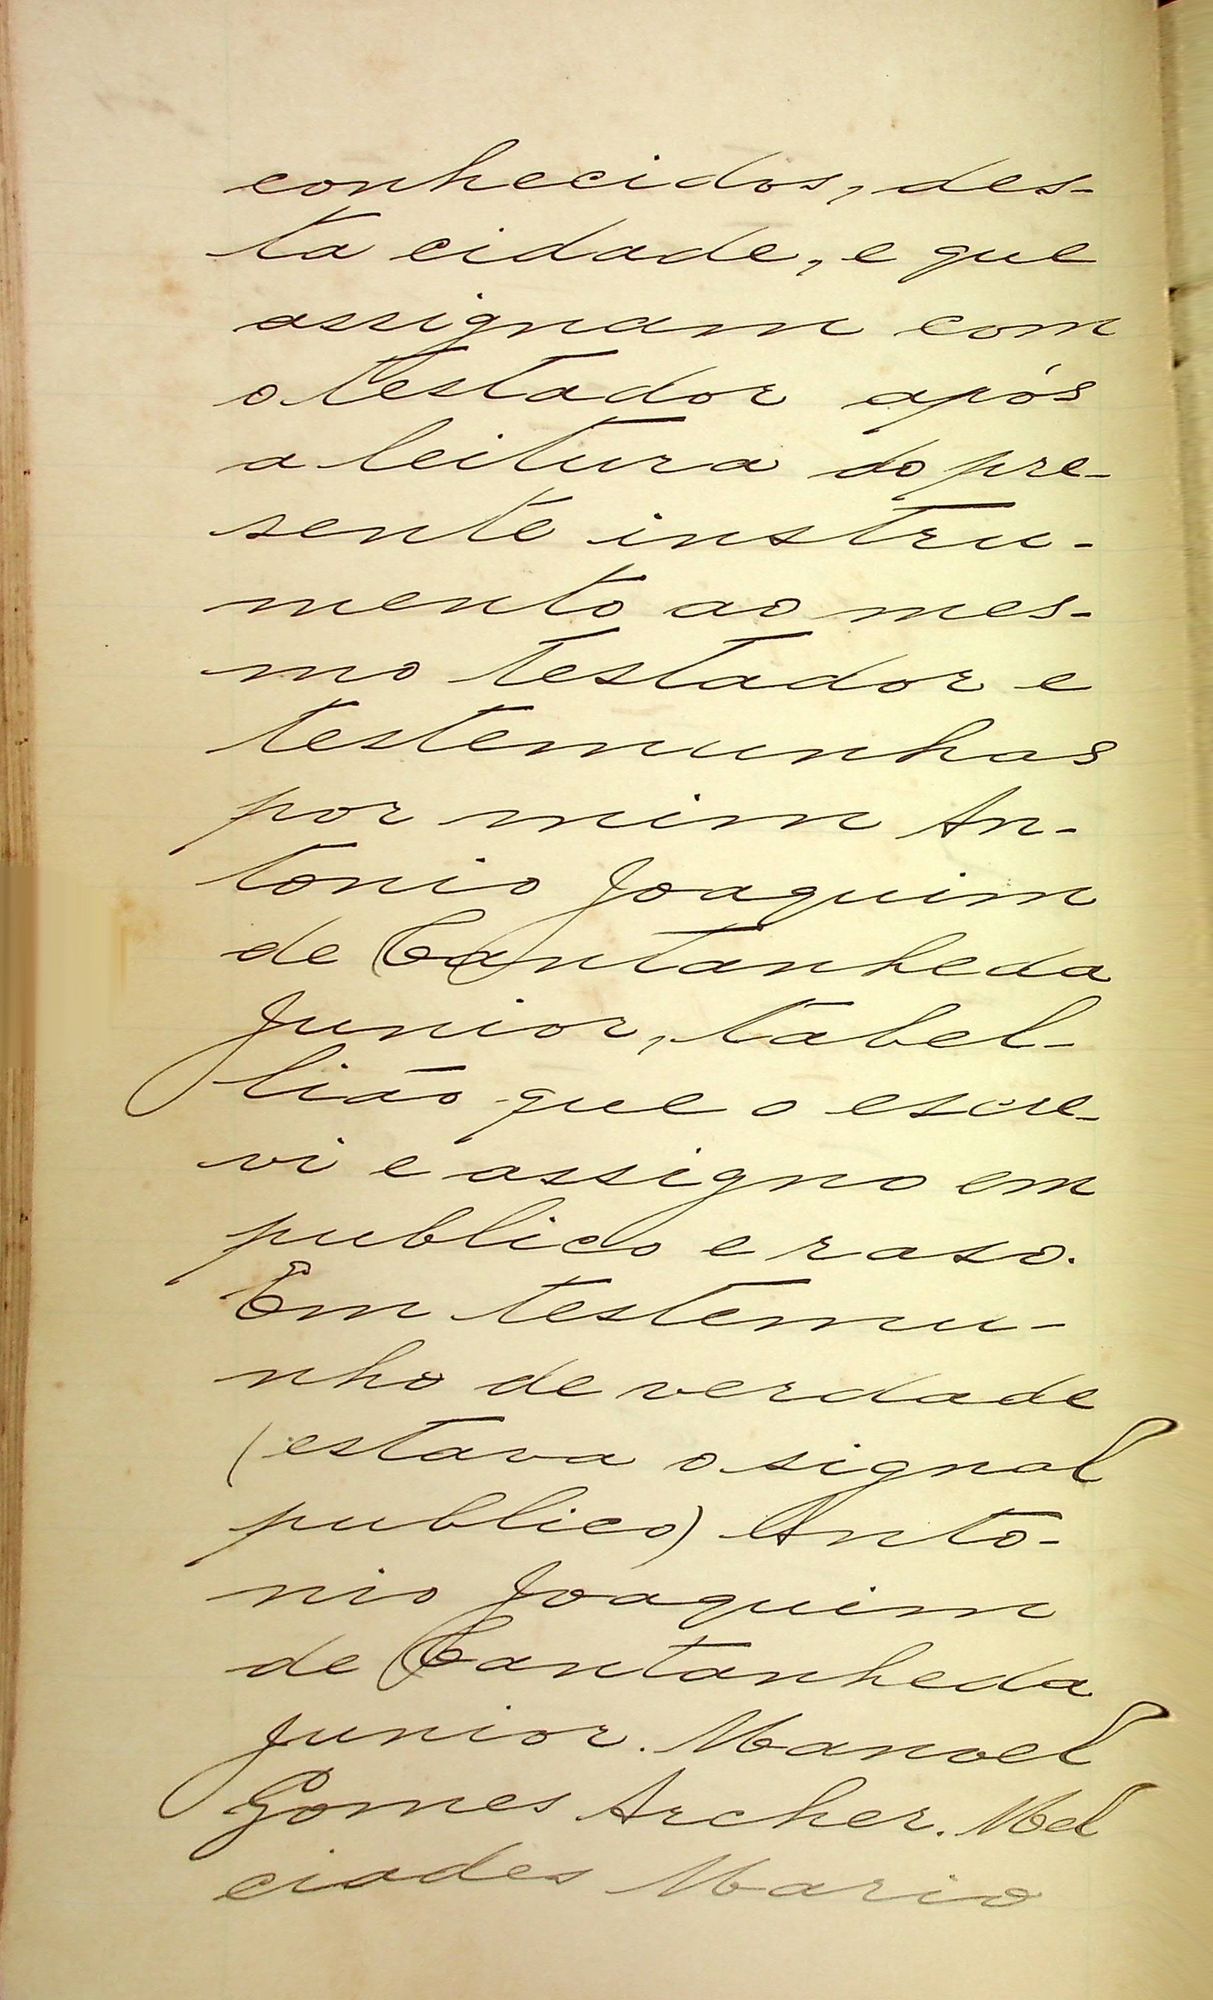 conhecidos, des-
ta cidade, e que
assignam com
o testador após
a leitura do pre-
sente instru-
mento ao mes-
mo testador e
testemunhas
por mim An-
tonio Joaquim
de Cantanheda
Junior, tabel-
lião que o escre-
vi e assigno em
publico e raso.
Em testemu-
nho de verdade
(estava o signal
publico) Anto-
nio Joaquim
de Cantanheda
Junior. Manoel
Gomes Archer. Mel
ciades Mario